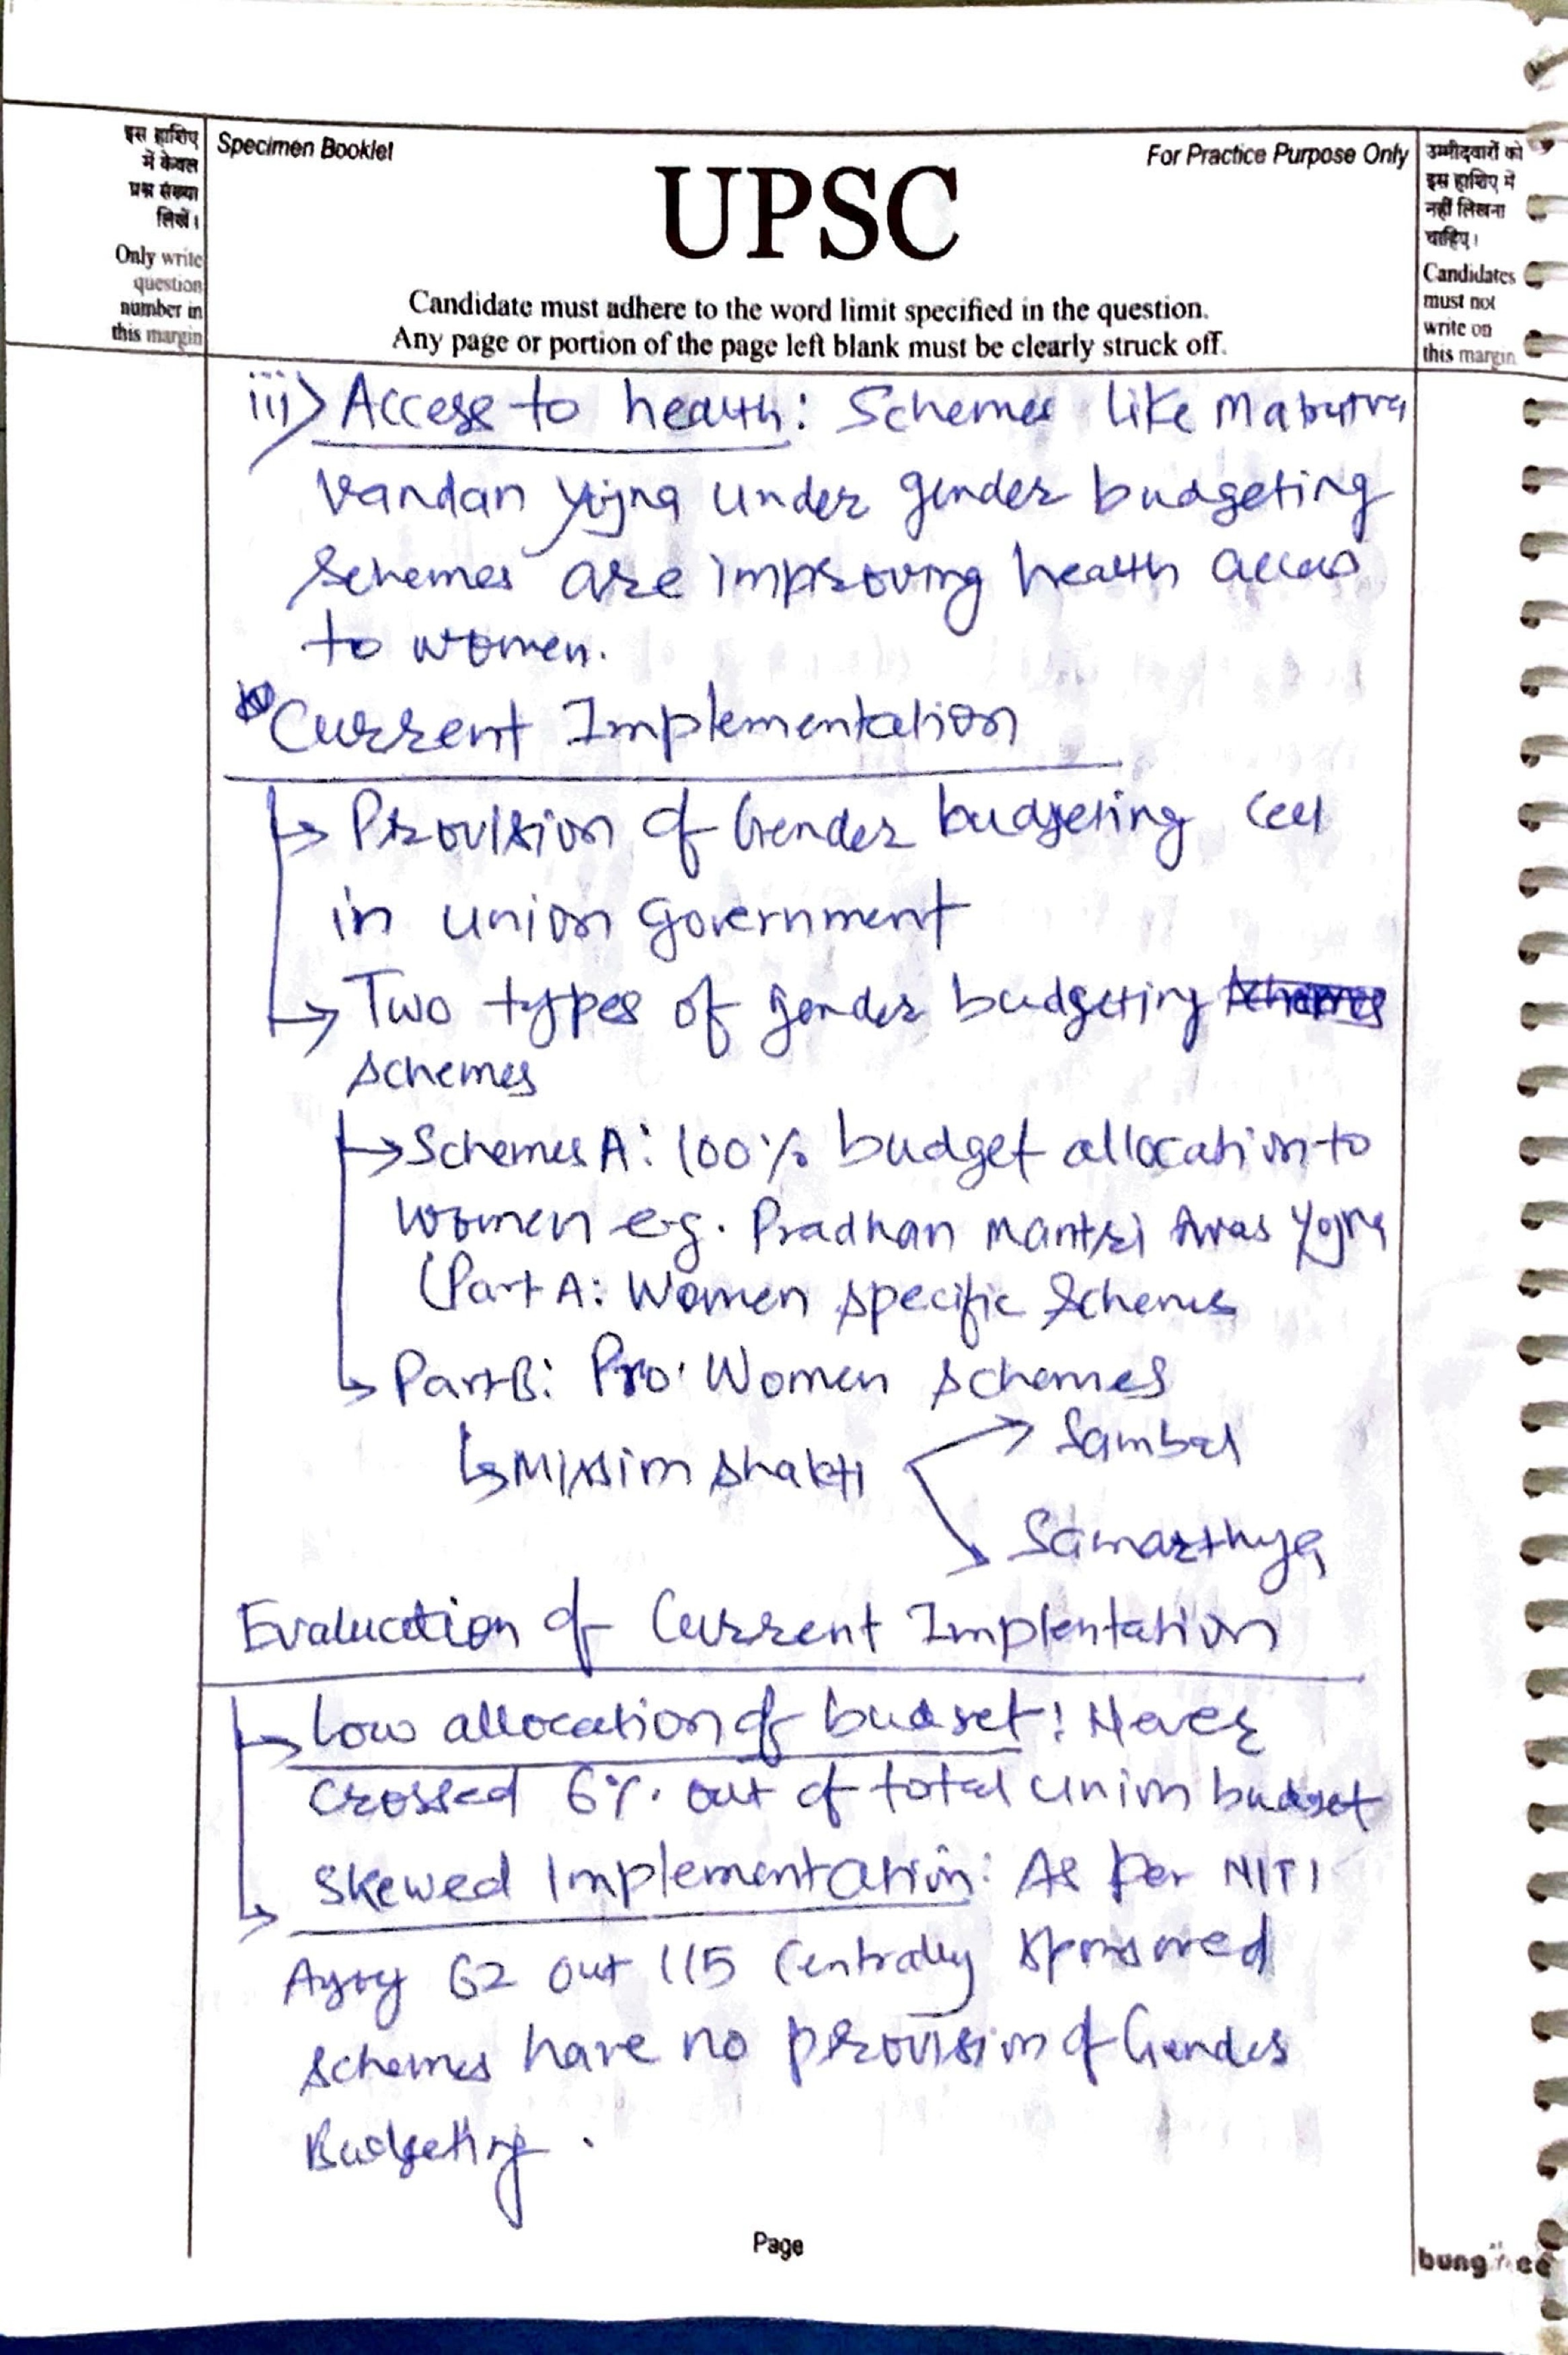 इस हाशिए
में केवल
प्रश्न संख्या
लिखें।
Only write
question
number in
this margin
Specimen Booklet
For Practice Purpose Only
UPSC
Candidate must adhere to the word limit specified in the question.
Any page or portion of the page left blank must be clearly struck off.
उम्मीदवारों को
इस हाशिए में
नहीं लिखना
चाहिए।
Candidates
must not
write on
this margin
iii) Access to health: Schemes like
Vandan Yojna under gender budgeting
schemes are improving health access
to women.
Current Implementation
→ Provision of Gender budgeting Cell
in union government
→ Two types of gender budgeting schemes
schemes
→ Schemes A: 100% budget allocation to
women e.g. Pradhan Mantri Awas Yojna
(Part A: Women specific Schemes
→ Part B: Pro. Women schemes
↳ Mission shakti → Sambal
→ Samarthya
Evaluation of Current Implentation
→ Low allocation of budget: Never
crossed 6% out of total union budget
→ Skewed Implementation: As per NITI
62 out 115 Centrally sponsored
schemes have no provision of Gender
Budgeting.
Page